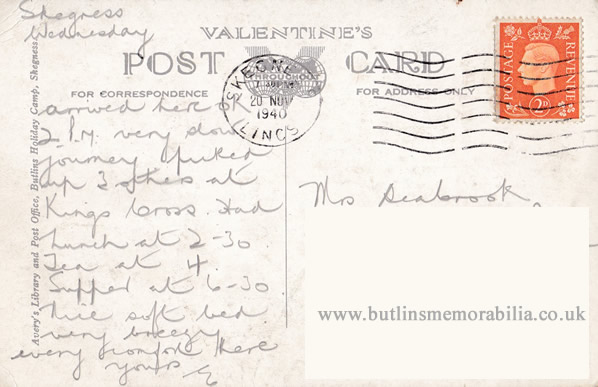 Skegness
Wednesday
VALENTINE'S
POST CARD
THROUGHOUT
FOR CORRESPONDENCE
FOR ADDRESS ONLY
SKEGNESS
7.30PM
20 NOV
1940
LINCS
POSTAGE
REVENUE
2D
Avery's Library and Post Office, Butlins Holiday Camp, Skegness
arrived here OK
2 P.M. very slow
journey picked
up 3 others at
Kings Cross. Had
Lunch at 2-30
Tea at 4.
Supper at 6-30
Nice soft bed
very breezy
every comfort here
yours
Mrs Seabrook,
www.butlinsmemorabilia.co.uk